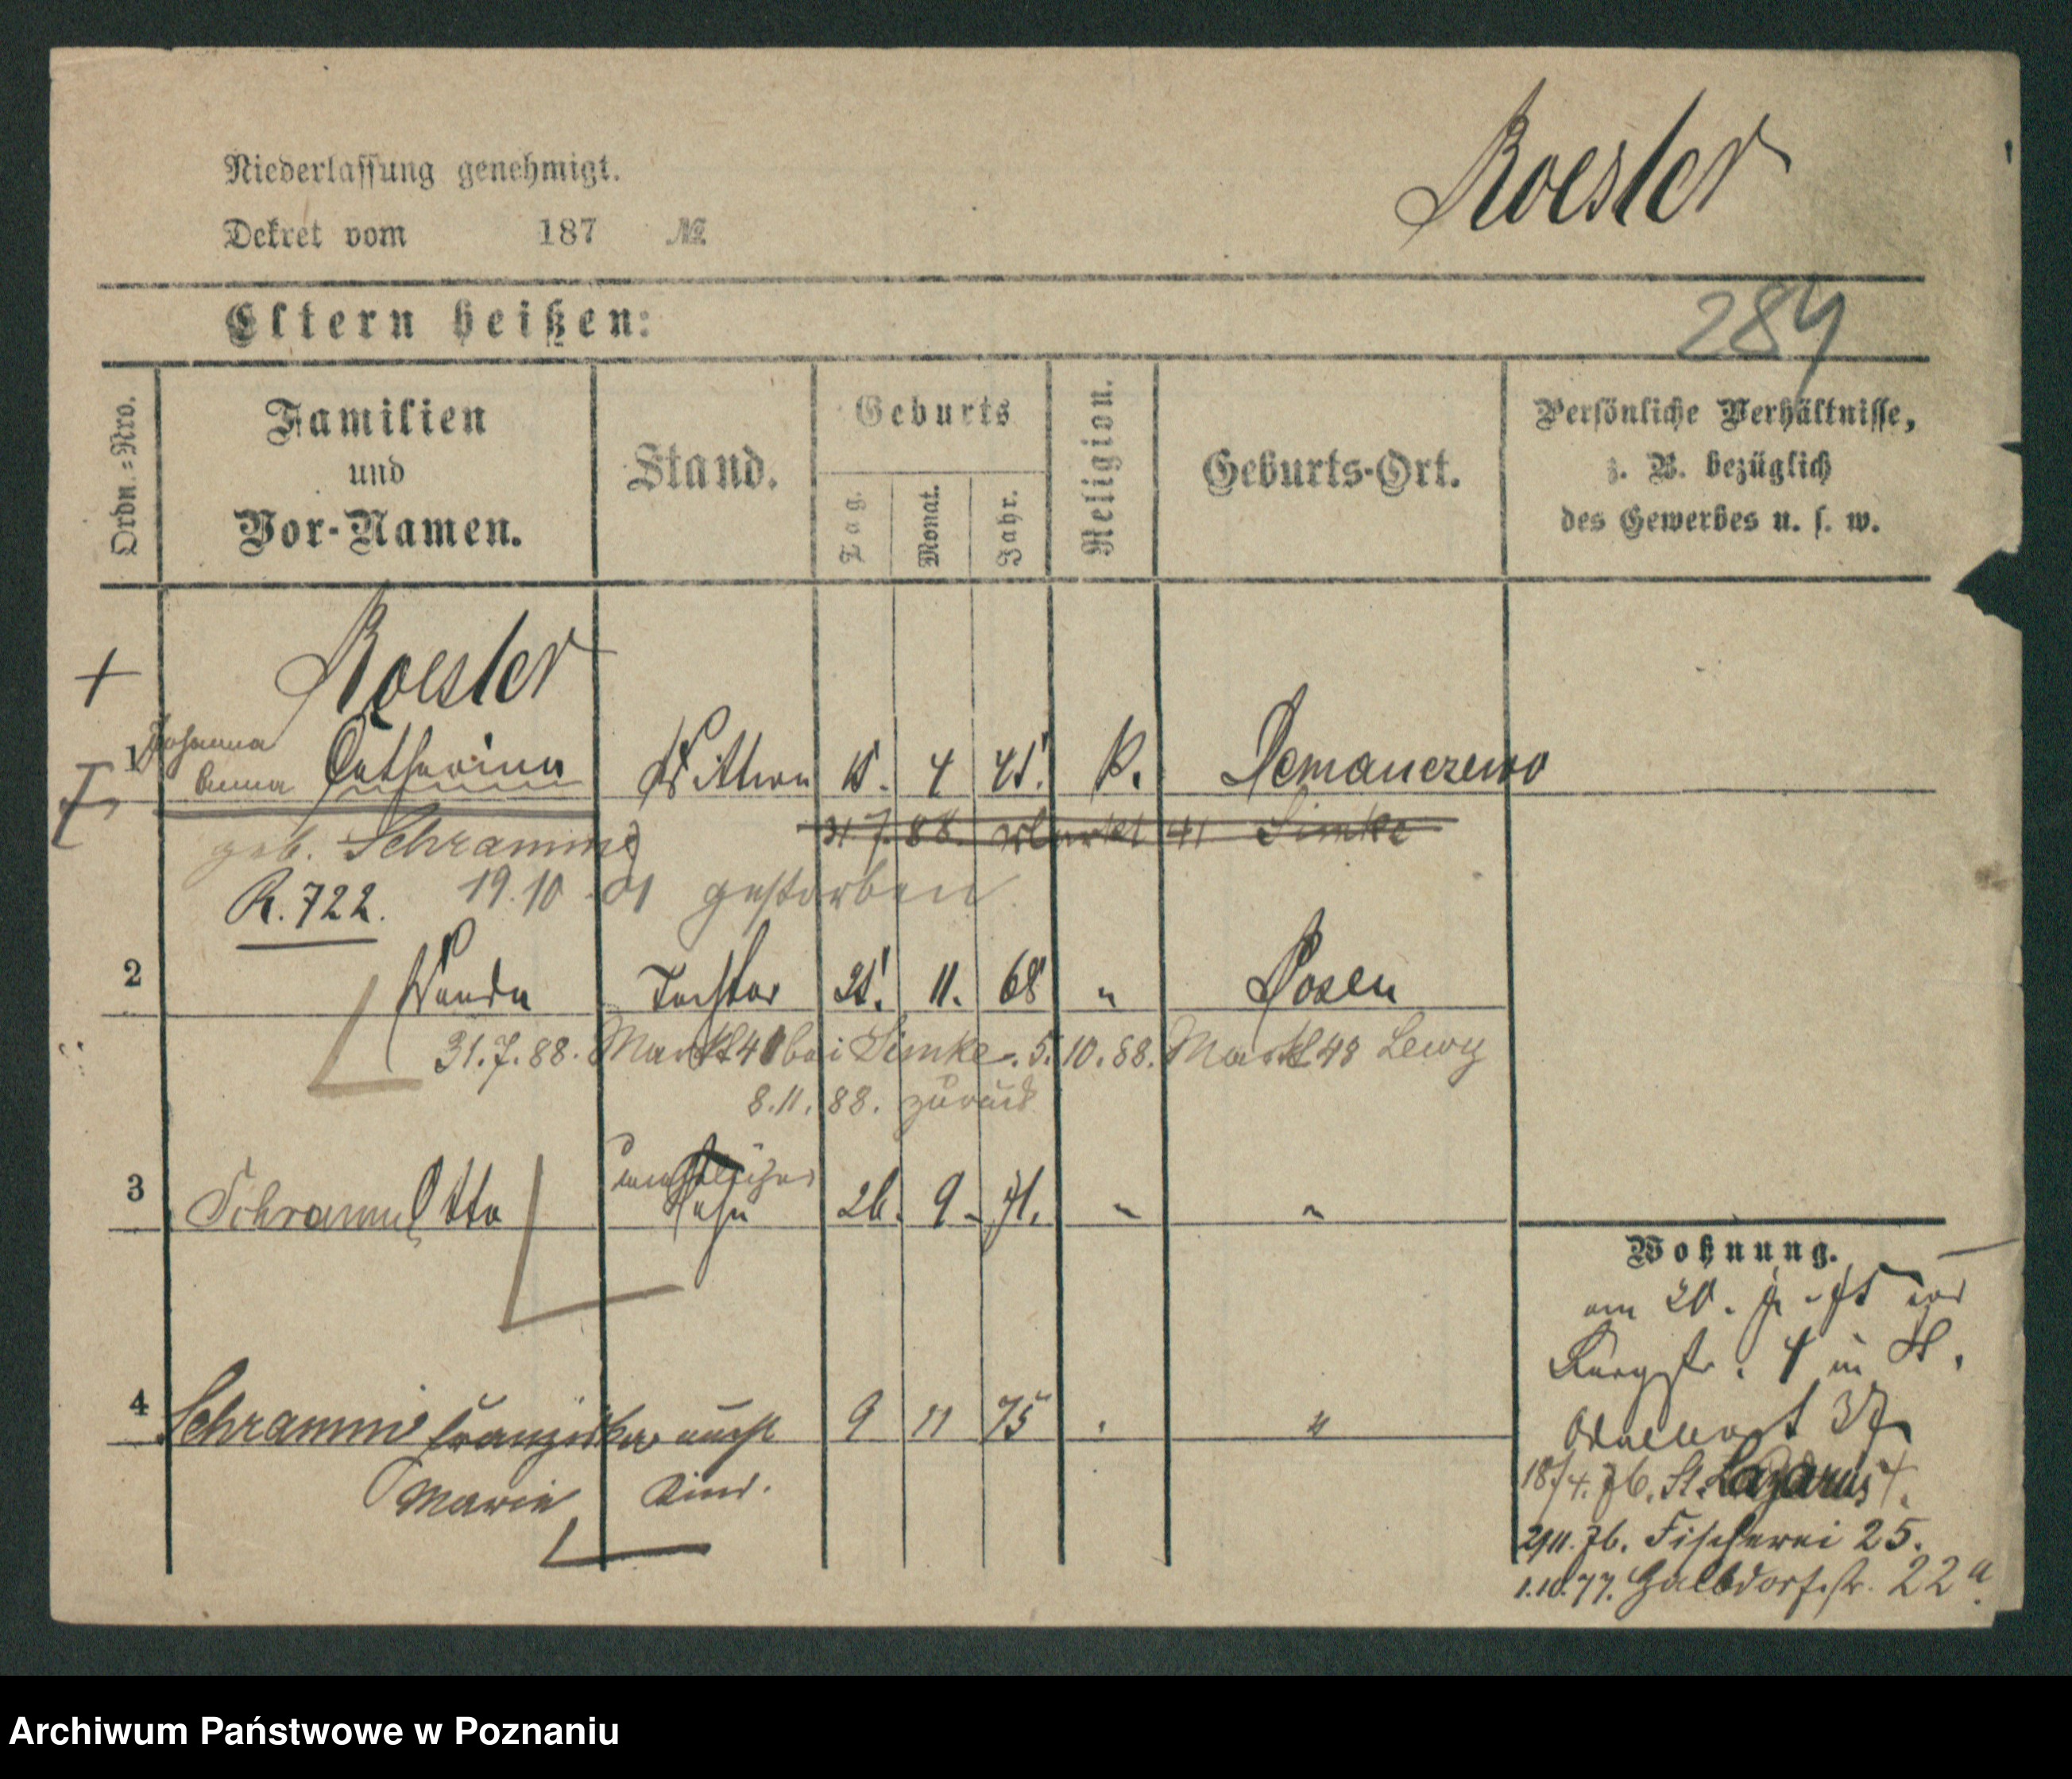 Niederlassung genehmigt.
Dekret vom 187 №
Roesler
Eltern heißen:
284
Ordn.=Nro.
Familien
und
Vor-Namen.
Stand.
Geburts
Tag.
Monat.
Jahr.
Religion.
Geburts-Ort.
Persönliche Verhältnisse,
z. B. bezüglich
des Gewerbes u. s. w.
+
Roesler
1 Johanna
Anna Catharina Wittwe 15. 4 45. K. Demanczewo
geb. Schramm 31.7.88. Markt 41 Simke
R. 722. 19.10.01 gestorben
2 Wanda Tochter 25. 11. 68 " Posen
31.7.88. Markt 41 bei Simke. 5.10.88. Markt 48 Lewy
8.11.88. zurück
3 Schramm Otto unehelicher
Sohn 26. 9. 71. " "
4 Schramm Franziska unehl 9 11 75 " "
Marie Kind.
Wohnung.
am 20.
37
18/4. 76. St. Lazarus
29.11.76. Fischerei 25.
1.10.77. Halbdorfstr. 22a.
Archiwum Państwowe w Poznaniu